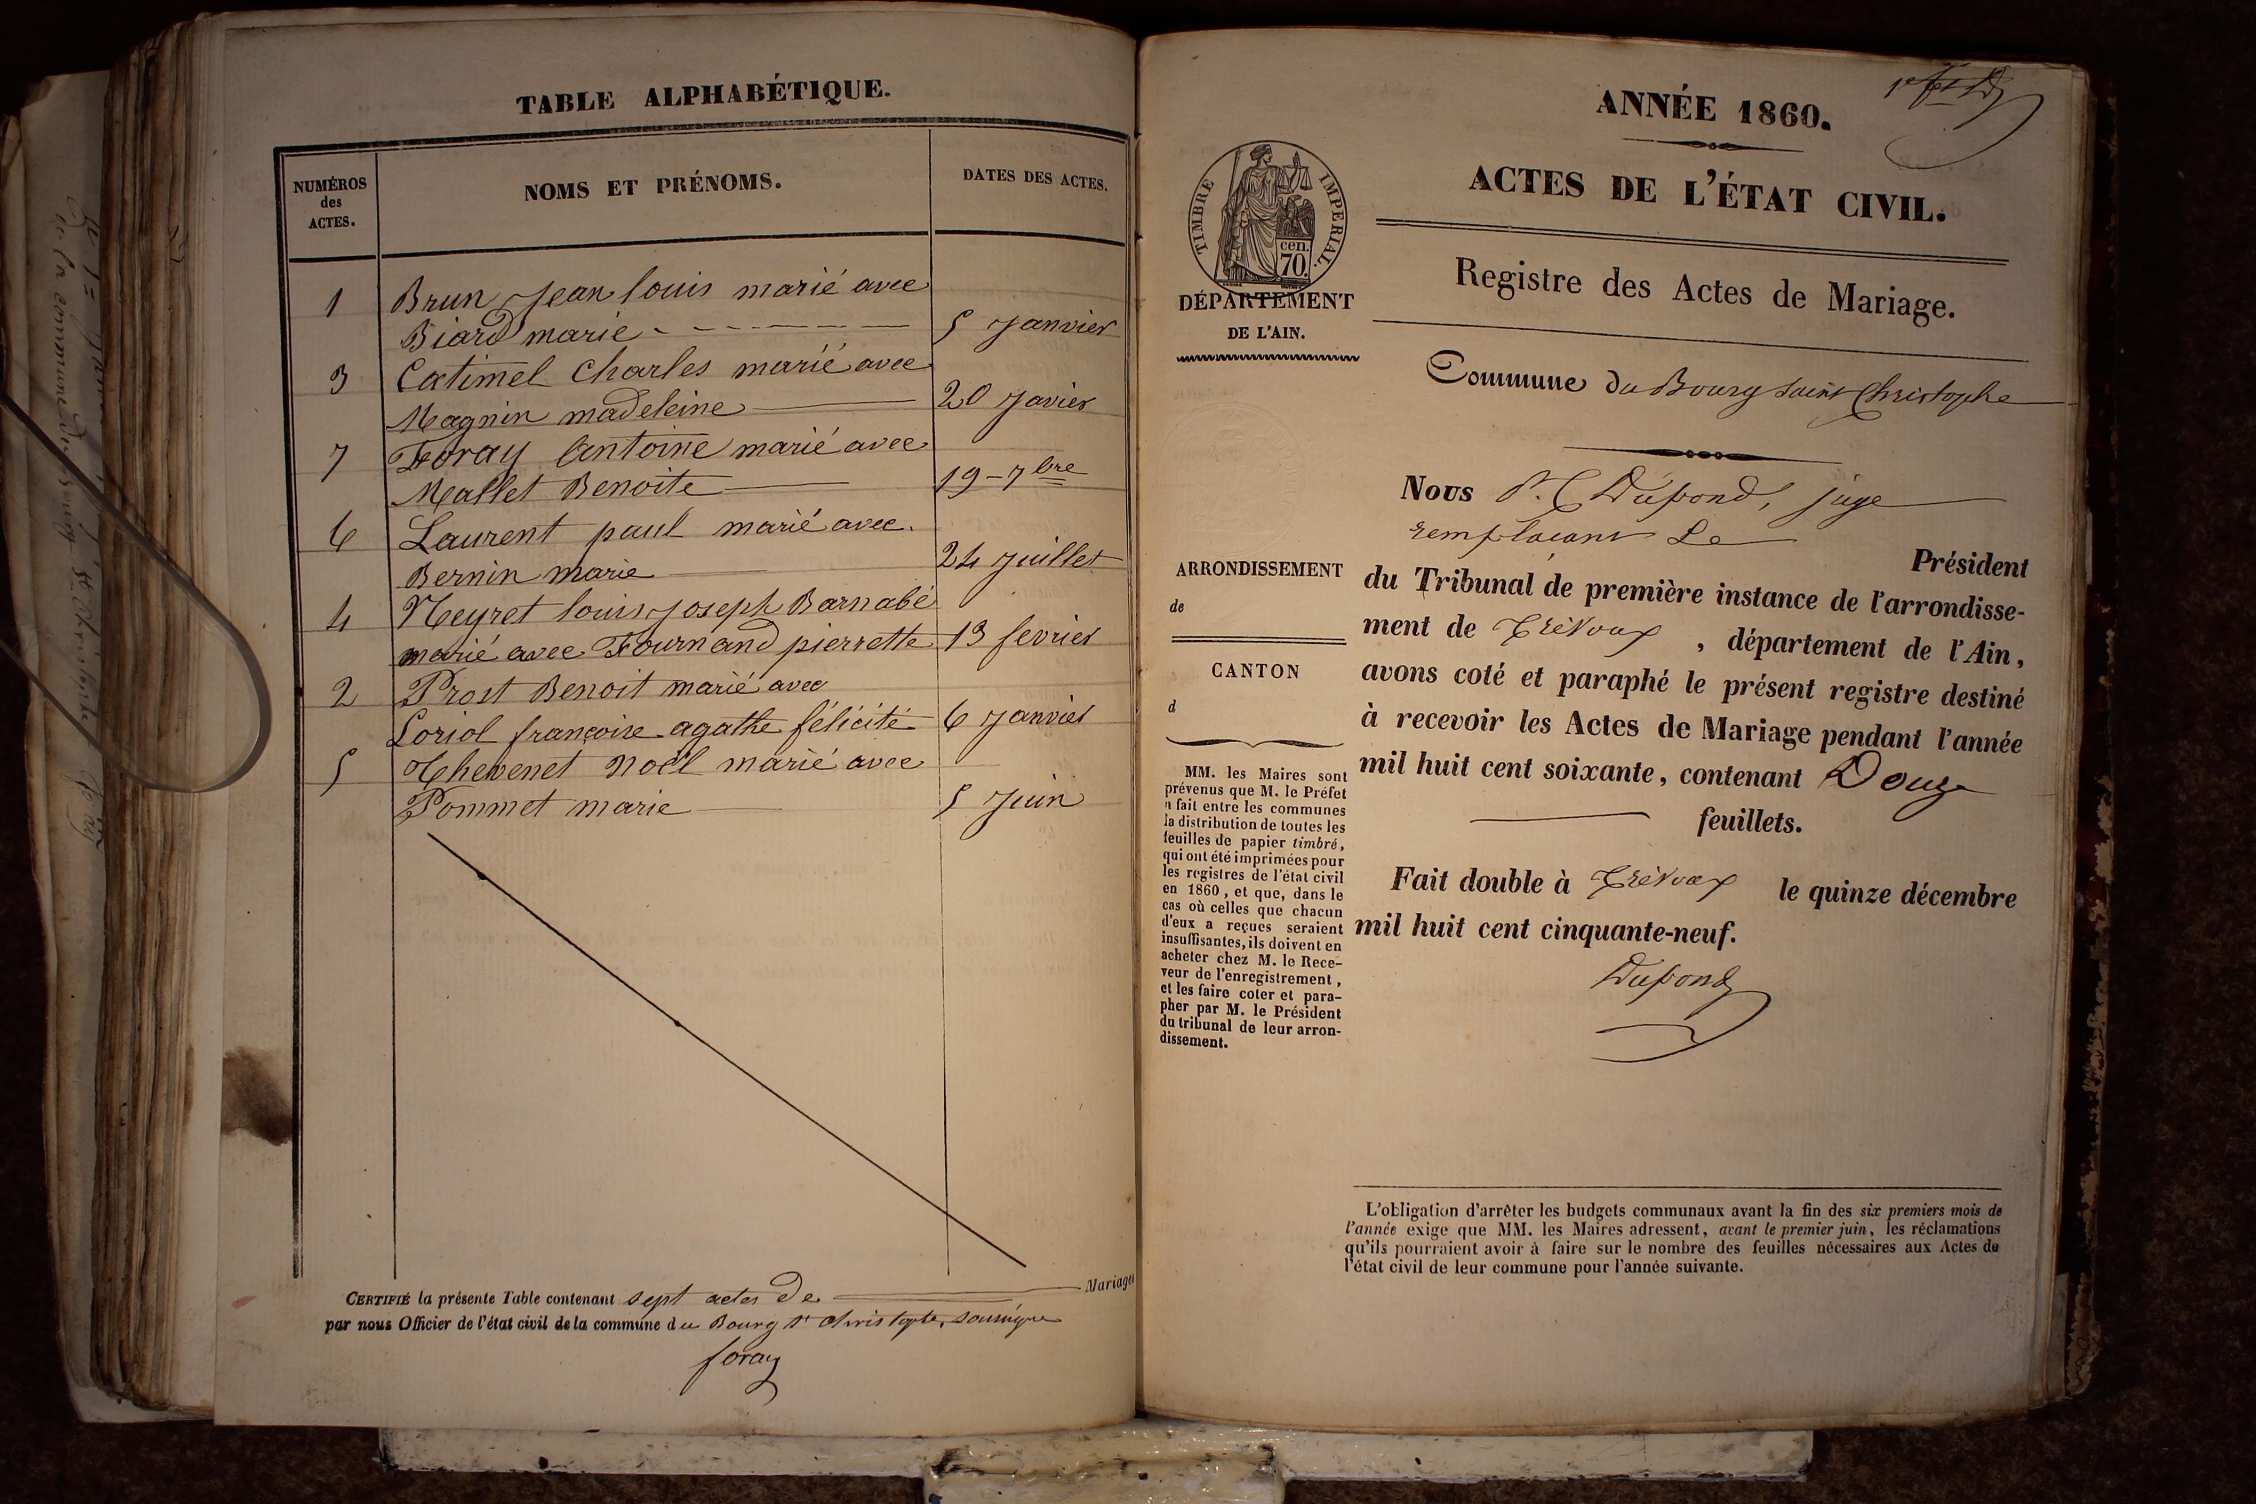 TABLE ALPHABÉTIQUE.
NUMÉROS
des
ACTES.
NOMS ET PRÉNOMS.
DATES DES ACTES.
1 Brun Jean louis marié avec
Biard marie 5 Janvier
3 Catimel Charles marié avec
Magnin madeleine 20 Javier
7 Foray Antoine marié avec
Mallet Benoite 19 - 7bre
6 Laurent paul marié avec
Bernin marie 24 Juillet
4 Neyret louis Joseph Barnabé
marié avec Fournand pierrette 13 fevrier
2 Prost Benoit marié avec
Loriol françoise agathe félicité 6 Janvier
5 Thevenet Noël marié avec
Pommet marie 5 Juin
CERTIFIÉ la présente Table contenant sept actes de Mariages
par nous Officier de l'état civil de la commune du Bourg St Christophe, soussigné
foray
ANNÉE 1860.
ACTES DE L'ÉTAT CIVIL.
Registre des Actes de Mariage.
Commune du Bourg saint Christophe
TIMBRE IMPERIAL.
cen.
70.
DÉPARTEMENT
DE L'AIN.
ARRONDISSEMENT
de
CANTON
d
MM. les Maires sont
prévenus que M. le Préfet
a fait entre les communes
la distribution de toutes les
feuilles de papier timbré,
qui ont été imprimées pour
les registres de l'état civil
en 1860, et que, dans le
cas où celles que chacun
d'eux a reçues seraient
insuffisantes, ils doivent en
acheter chez M. le Rece-
veur de l'enregistrement,
et les faire coter et para-
pher par M. le Président
du tribunal de leur arron-
dissement.
Nous Dupond, juge
remplaçant Le Président
du Tribunal de première instance de l'arrondisse-
ment de Trévoux, département de l'Ain,
avons coté et paraphé le présent registre destiné
à recevoir les Actes de Mariage pendant l'année
mil huit cent soixante, contenant Douze
feuillets.
Fait double à Trévoux le quinze décembre
mil huit cent cinquante-neuf.
Dupond
L'obligation d'arrêter les budgets communaux avant la fin des six premiers mois de
l'année exige que MM. les Maires adressent, avant le premier juin, les réclamations
qu'ils pourraient avoir à faire sur le nombre des feuilles nécessaires aux Actes de
l'état civil de leur commune pour l'année suivante.